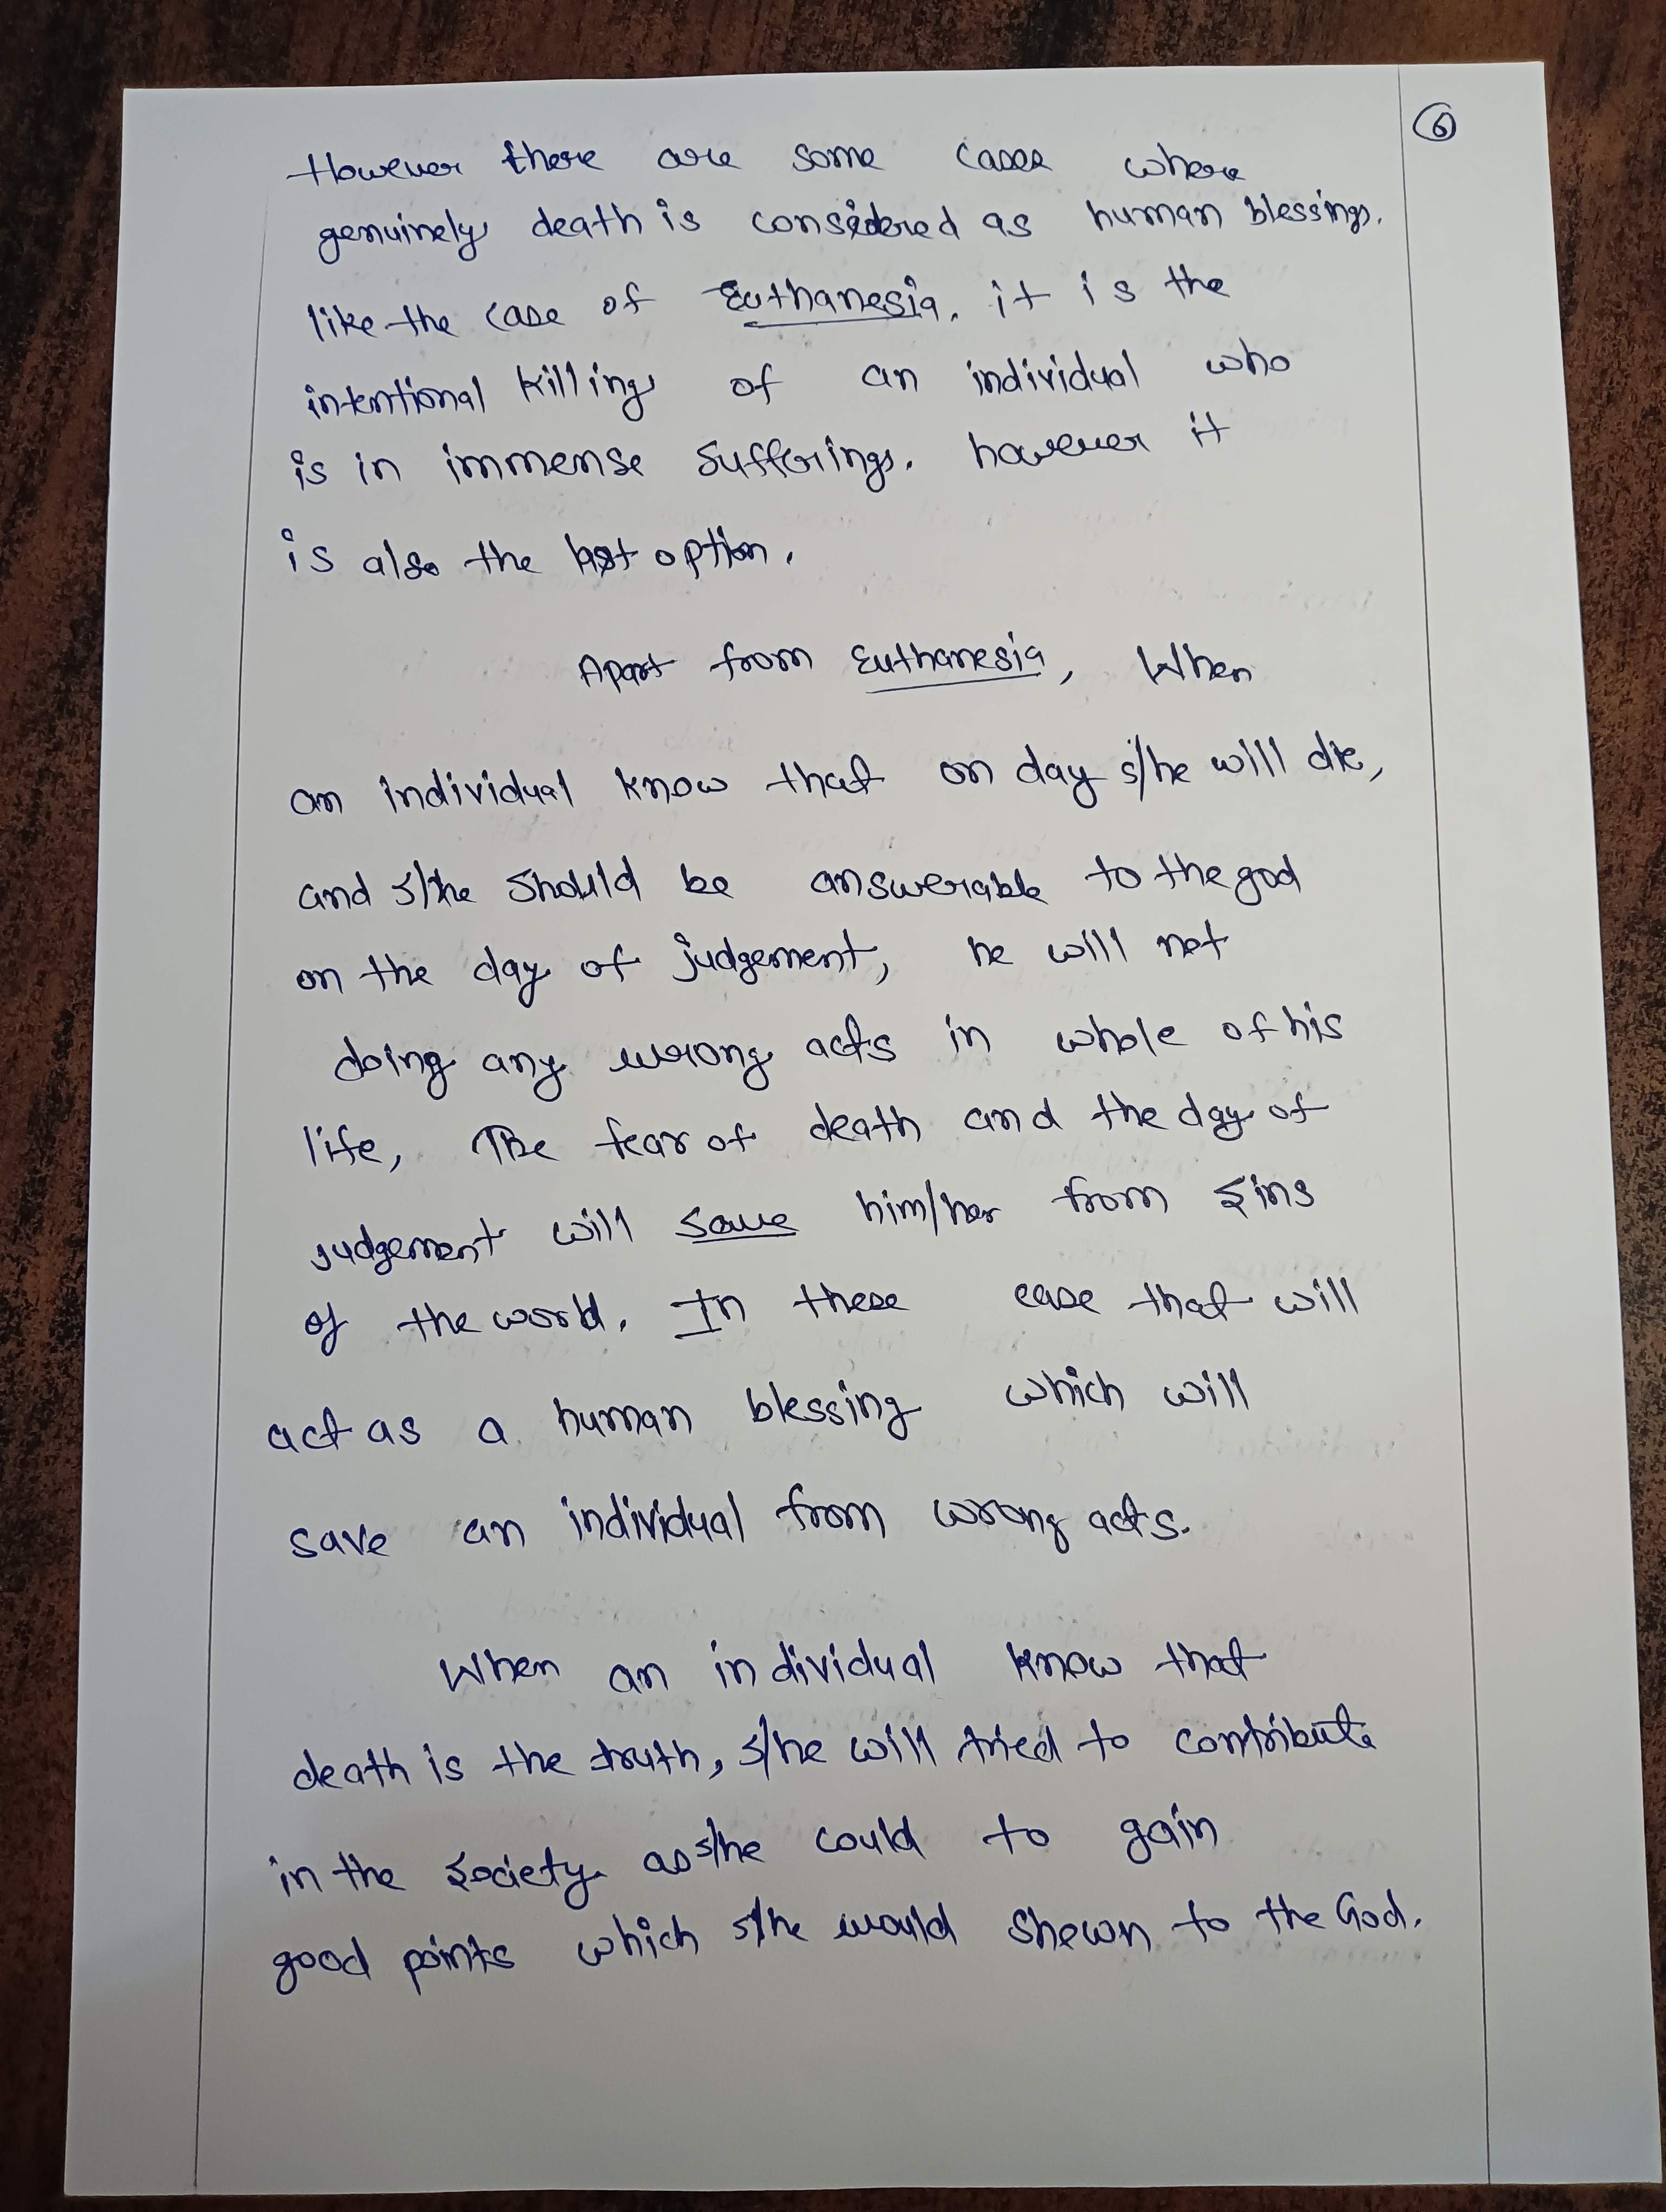 6
However there are some cases where
genuinely death is considered as human blessings.
like the case of Euthanesia. it is the
intentional killing of an individual who
is in immense sufferings. however it
is also the last option.
Apart from Euthanesia, When
an individual know that on day s/he will die,
and s/he should be answerable to the god
on the day of judgement, he will not
doing any wrong acts in whole of his
life, The fear of death and the day of
judgement will save him/her from sins
of the world. In these case that will
act as a human blessing which will
save an individual from wrong acts.
When an individual know that
death is the truth, s/he will tried to contribute
in the society as s/he could to gain
good points which s/he would shown to the God.